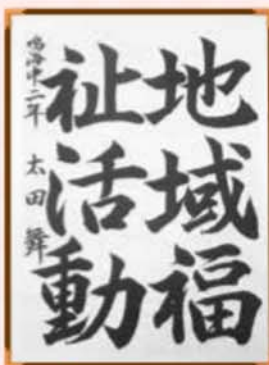 地域福
祉活動
鳴海中二年 太田舞